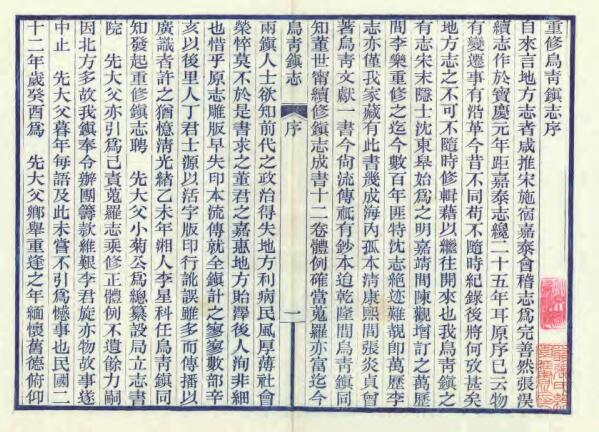 重修烏青鎮志序
自來言地方志者咸推宋施宿嘉泰會稽志爲完善然張淏
續志作於寶慶元年距嘉泰志纔二十五年耳原序已云物
有變遷事有沿革今昔不同苟不隨時紀錄後將何攷甚矣
地方志之不可不隨時修輯藉以繼往開來也我烏青鎮之
有志宋末隱士沈東皋始爲之明嘉靖間陳觀增訂之萬歷
間李樂重修之迄今數百年匪特沈志絕迹難覩卽萬歷李
志亦僅我家藏有此書幾成海內孤本清康熙間張炎貞曾
著烏青文獻一書今尙流傳祗有鈔本迨乾隆間烏青鎮同
知董世甯續修鎮志成書十二卷體例確當蒐羅亦富迄今
烏青鎮志
序
一
兩鎮人士欲知前代之政治得失地方利病民風厚薄社會
榮悴莫不於是書求之董君之嘉惠地方貽澤後人洵非細
也惜乎原志雕版早失印本流傳就全鎮計之寥寥數部辛
亥以後里人丁君士源以活字版印行訛誤雖多而傳播以
廣識者許之猶憶清光緒乙未年湘人李星科任烏青鎮同
知發起重修鎮志聘　先大父小菊公爲總纂設局立志書
院　先大父亦引爲己責蒐羅志乘修正體例不遺餘力嗣
因北方多故我鎮奉令辦團籌款維艱李君旋亦物故事遂
中止　先大父暮年每語及此未嘗不引爲憾事也民國二
十二年歲癸酉爲　先大父鄉舉重逢之年緬懷舊德俯仰